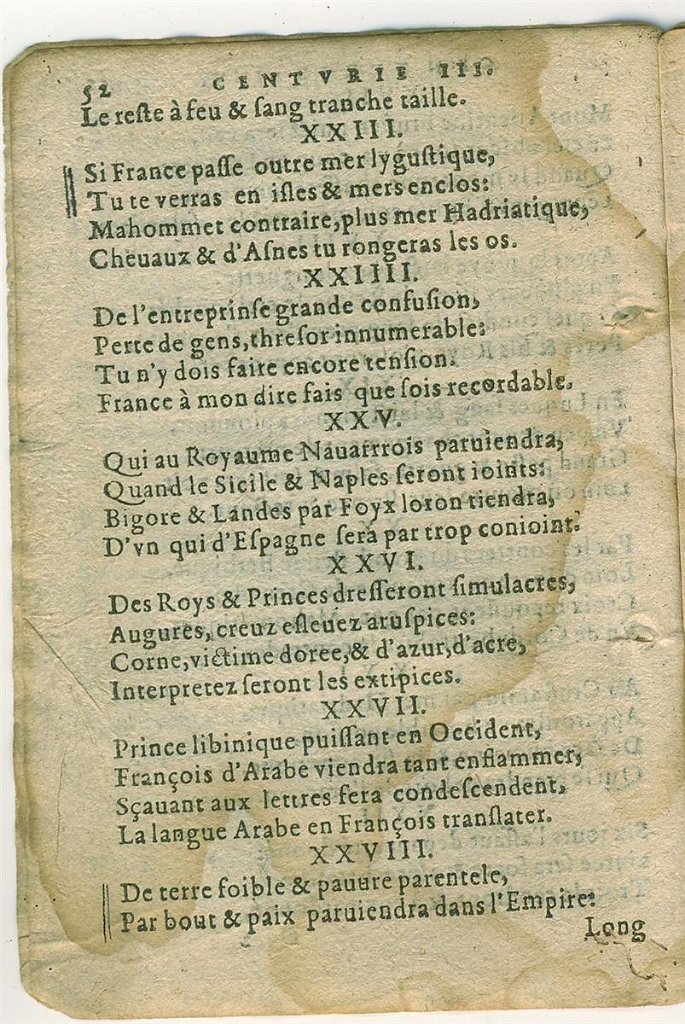 52 CENTVRIE III.
Le reſte à feu & ſang tranche taille.
XXIII.
Si France paſſe outre mer lyguſtique,
Tu te verras en iſles & mers enclos:
Mahommet contraire, plus mer Hadriatique,
Cheuaux & d'Aſnes tu rongeras les os.
XXIIII.
De l'entreprinſe grande confuſion,
Perte de gens, threſor innumerable:
Tu n'y dois faire encore tenſion.
France à mon dire fais que ſois recordable.
XXV.
Qui au Royaume Nauarrrois paruiendra,
Quand le Sicile & Naples ſeront ioints:
Bigore & Landes par Foyx loron tiendra,
D'vn qui d'Eſpagne ſera par trop conioint.
XXVI.
Des Roys & Princes dreſſeront ſimulacres,
Augures, creuz eſleuez aruſpices:
Corne, victime doree, & d'azur, d'acre,
Interpretez ſeront les extipices.
XXVII.
Prince libinique puiſſant en Occident,
François d'Arabe viendra tant enflammer,
Sçauant aux lettres ſera condeſcendent,
La langue Arabe en François tranſlater.
XXVIII.
De terre foible & pauure parentele,
Par bout & paix paruiendra dans l'Empire:
Long